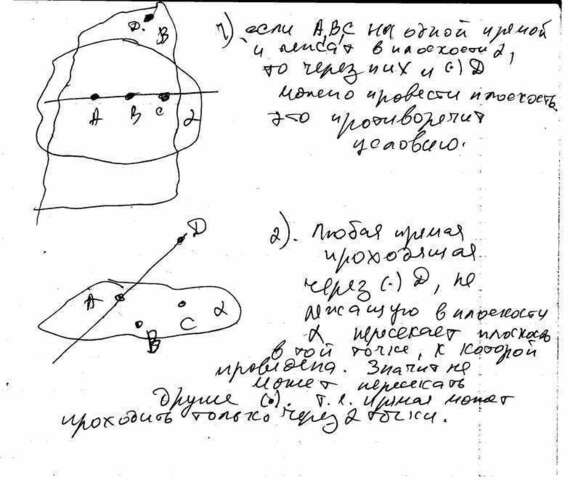 D.
B
A B C
α
1). если A,B,C на одной прямой
и лежат в плоскости α,
то через них и (·) D
можно провести плоскость
это противоречит
условию.
D
A
B
C
α
2). Любая прямая
проходящая
через (·) D, не
лежащую в плоскости
α пересекает плоскость
в той точке, к которой
проведена. Значит не
может пересекать
другие (·). т.к. прямая может
проходить только через 2 точки.